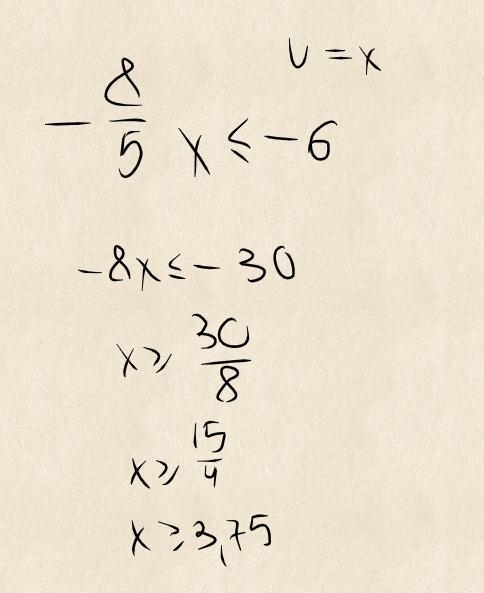 U = x
- 8/5 x ≤ - 6
-8x ≤ - 30
x ≥ 30/8
x ≥ 15/4
x ≥ 3,75